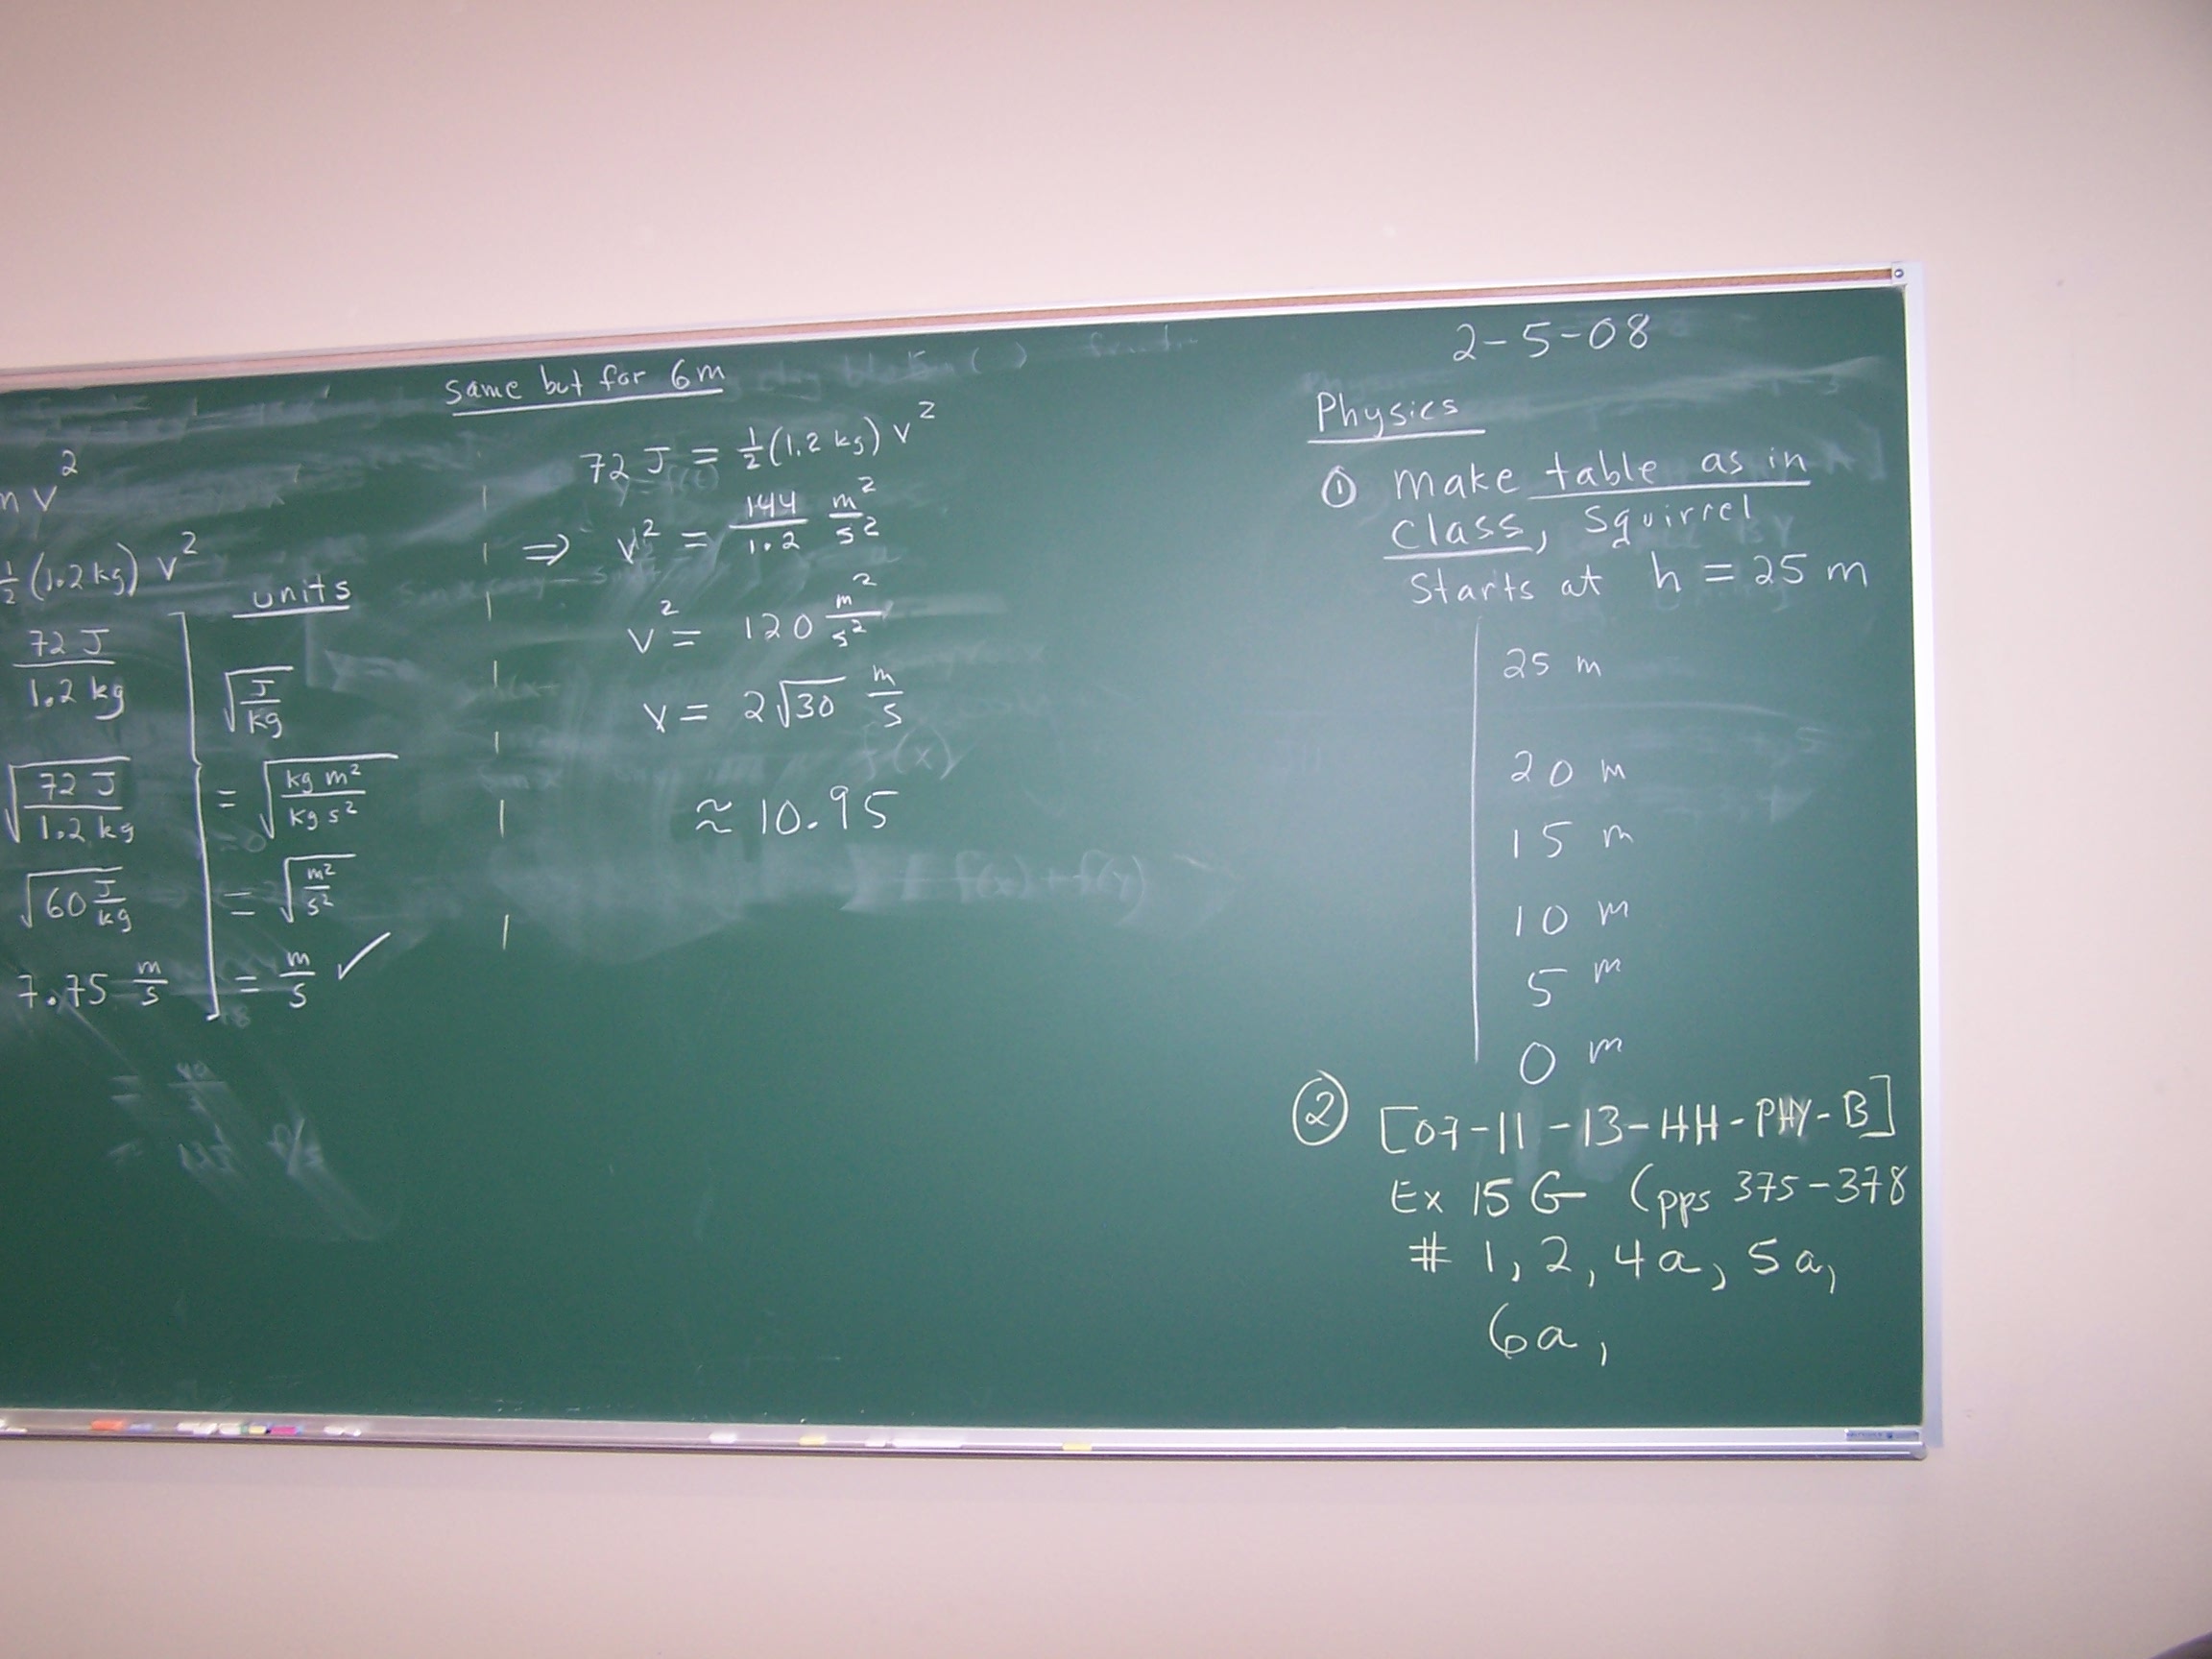 mv²
½ (1.2 kg) v²
72 J / 1.2 kg
√(72 J / 1.2 kg)
√(60 J/kg)
7.75 m/s
units
√(J/kg)
= √(kg m² / kg s²)
= √(m²/s²)
= m/s ✓
Same but for 6m
72 J = ½(1.2 kg) v²
⇒ v² = 144/1.2 m²/s²
v² = 120 m²/s²
v = 2√30 m/s
≈ 10.95
2-5-08
Physics
① Make table as in
class, squirrel
starts at h = 25 m
25 m
20 m
15 m
10 m
5 m
0 m
② [07-11-13-HH-PHY-B]
Ex 15 G (pps 375-378
# 1, 2, 4a, 5a,
6a,